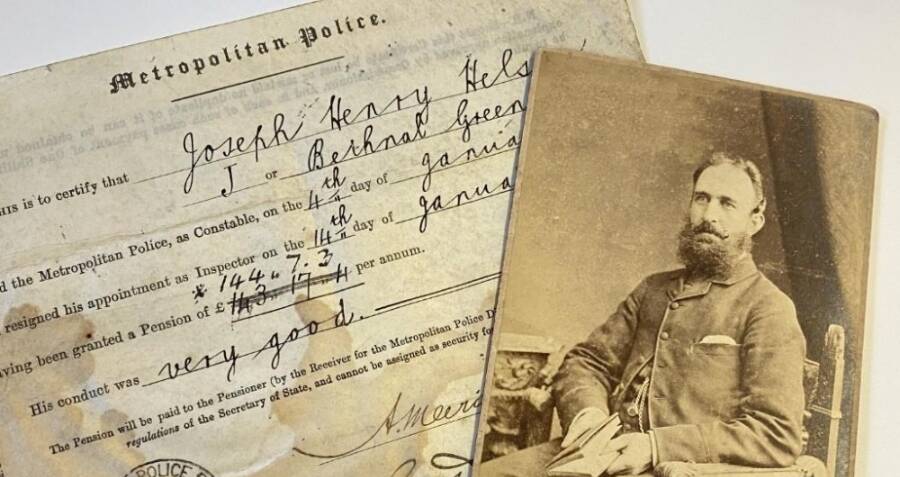 Metropolitan Police.
HIS is to certify that Joseph Henry Hels
J or Bethnal Green
d the Metropolitan Police, as Constable, on the 4th day of Janua
resigned his appointment as Inspector on the 14th day of Janua
* 144 " 7. 3
aving been granted a Pension of £143 " 17 " 4 per annum.
His conduct was very good.
The Pension will be paid to the Pensioner (by the Receiver for the Metropolitan Police D
regulations of the Secretary of State, and cannot be assigned as security fo
POLICE